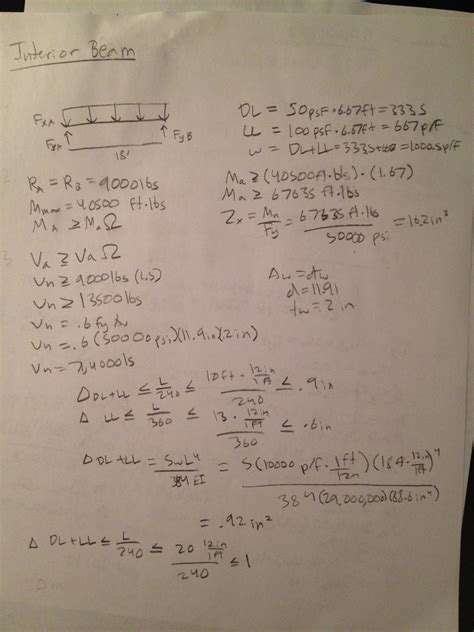 Interior Beam
DL = 50psf · 6.67ft = 333
LL = 100psf · 6.67ft = 667 p/f
w = DL+LL = 333+ = 1000
FxA
FyA
FyB
18'
2.
RA = RB = 9000lbs
Mmax = 40500 ft·lb
MA ≥ MnΩ
Ma ≥ (40500ft·lbs)·(1.67)
Ma ≥ 67635 ft·lbs
Zx = Mn/Fy = 67635 ft·lb/50000 psi = 16.2in³
3.
Va ≥ VaΩ
Vn ≥ 9000lbs (1.5)
Vn ≥ 13500lbs
Vn = .6 Fy
Vn = .6 (50000psi)(11.9in)(.2in)
Vn = 
Aw = dtw
d = 11.91
tw = .2 in
Δ DL+LL ≤ L/240 ≤ · 12in/1ft/240 ≤ .9in
Δ LL ≤ L/360 ≤ · 12in/1ft/360 ≤ .6in
Δ DL+LL = 5wL⁴/384 EI = 5(10000 p/f · 1ft/12in)(18 · 12in/1ft)⁴/384(29,000,000)(88.6in⁴)
= .92in²
Δ DL+LL ≤ L/240 ≤ 20 12in/1ft/240 ≤ 1